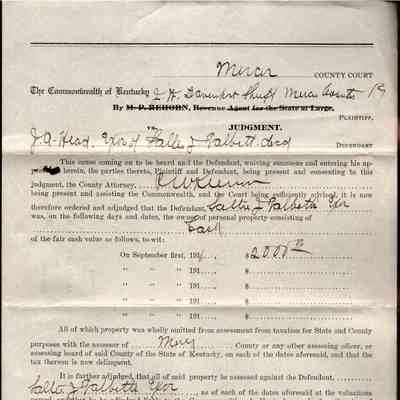 Mercer COUNTY COURT
The Commonwealth of Kentucky
By M. P. REHORN, Revenue Agent for the State at Large,
PLAINTIFF,
vs. JUDGMENT.
J. A. Head, Exr of Sallie J Talbott, decd DEFENDANT
This cause coming on to be heard and the Defendant, waiving summons and entering his ap-
herein, the parties thereto, Plaintiff and Defendant, being present and consenting to this
judgment, the County Attorney,
being present and assisting the Commonwealth, and the Court being sufficiently advised, it is now
therefore ordered and adjudged that the Defendant, Sallie J Talbotts Exr
was, on the following days and dates, the owner of personal property consisting of
Cash
of the fair cash value as follows, to wit:
On September first, 191 $ 2000
" " " 191 $
" " " 191 $
" " " 191 $
" " " 191 $
All of which property was wholly omitted from assessment from taxation for State and County
purposes with the assessor of Mercer County or any other assessing officer, or
assessing board of said County of the State of Kentucky, on each of the dates aforesaid, and that the
tax thereon is now delinquent.
It is further adjudged, that all of said property be assessed against the Defendant,
Sallie J Talbotts Exr as of each of the dates aforesaid at the valuations